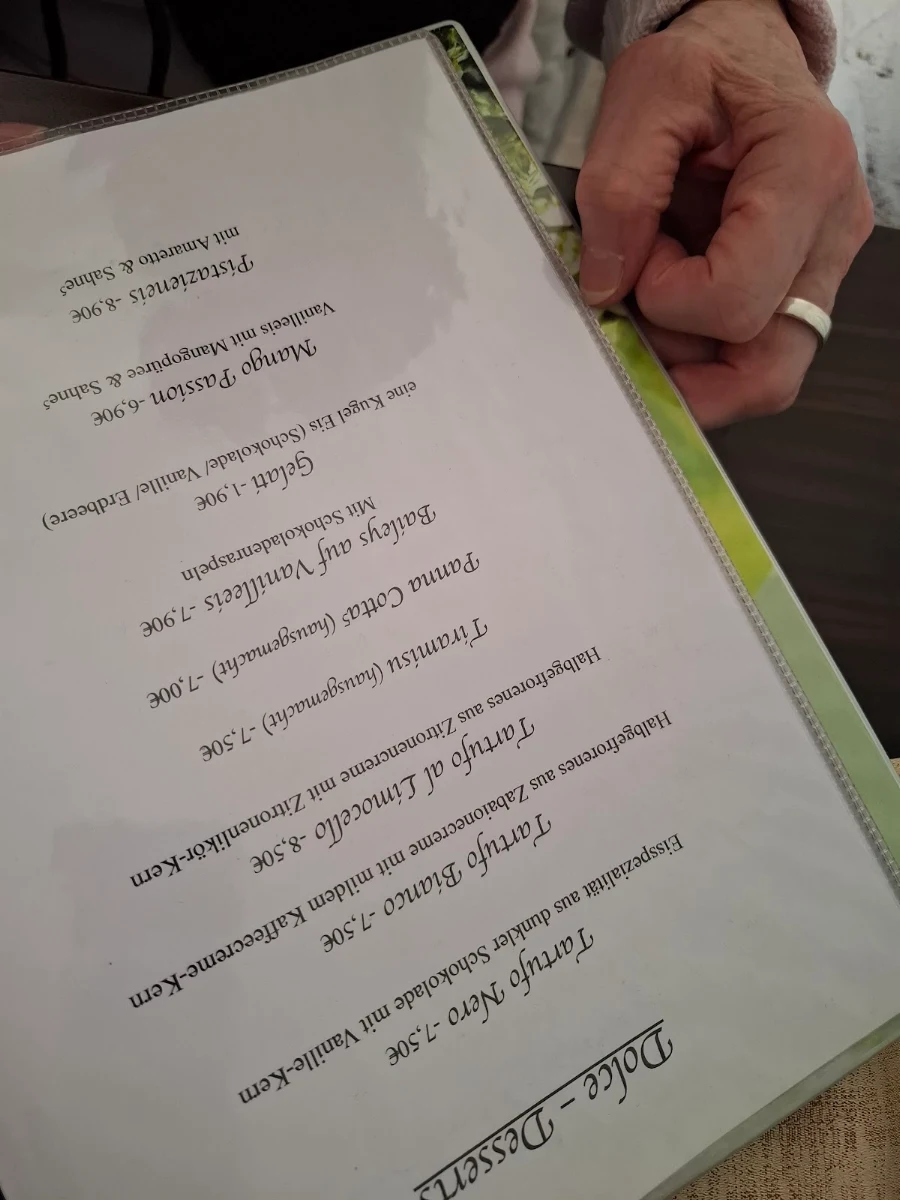 Dolce – Desserts
Tartufo Nero -7,50€
Eisspezialität aus dunkler Schokolade mit Vanille-Kern
Tartufo Bianco -7,50€
Halbgefrorenes aus Zabaionecreme mit mildem Kaffeecreme-Kern
Tartufo al Limocello -8,50€
Halbgefrorenes aus Zitronencreme mit Zitronenlikör-Kern
Tiramisu (hausgemacht) -7,50€
Panna Cotta⁵ (hausgemacht) -7,00€
Baileys auf Vanilleeis -7,90€
Mit Schokoladenraspeln
Gelati -1,90€
eine Kugel Eis (Schokolade/ Vanille/ Erdbeere)
Mango Passion -6,90€
Vanilleeis mit Mangopüree & Sahne⁵
Pistazieneis -8,90€
mit Amaretto & Sahne⁵